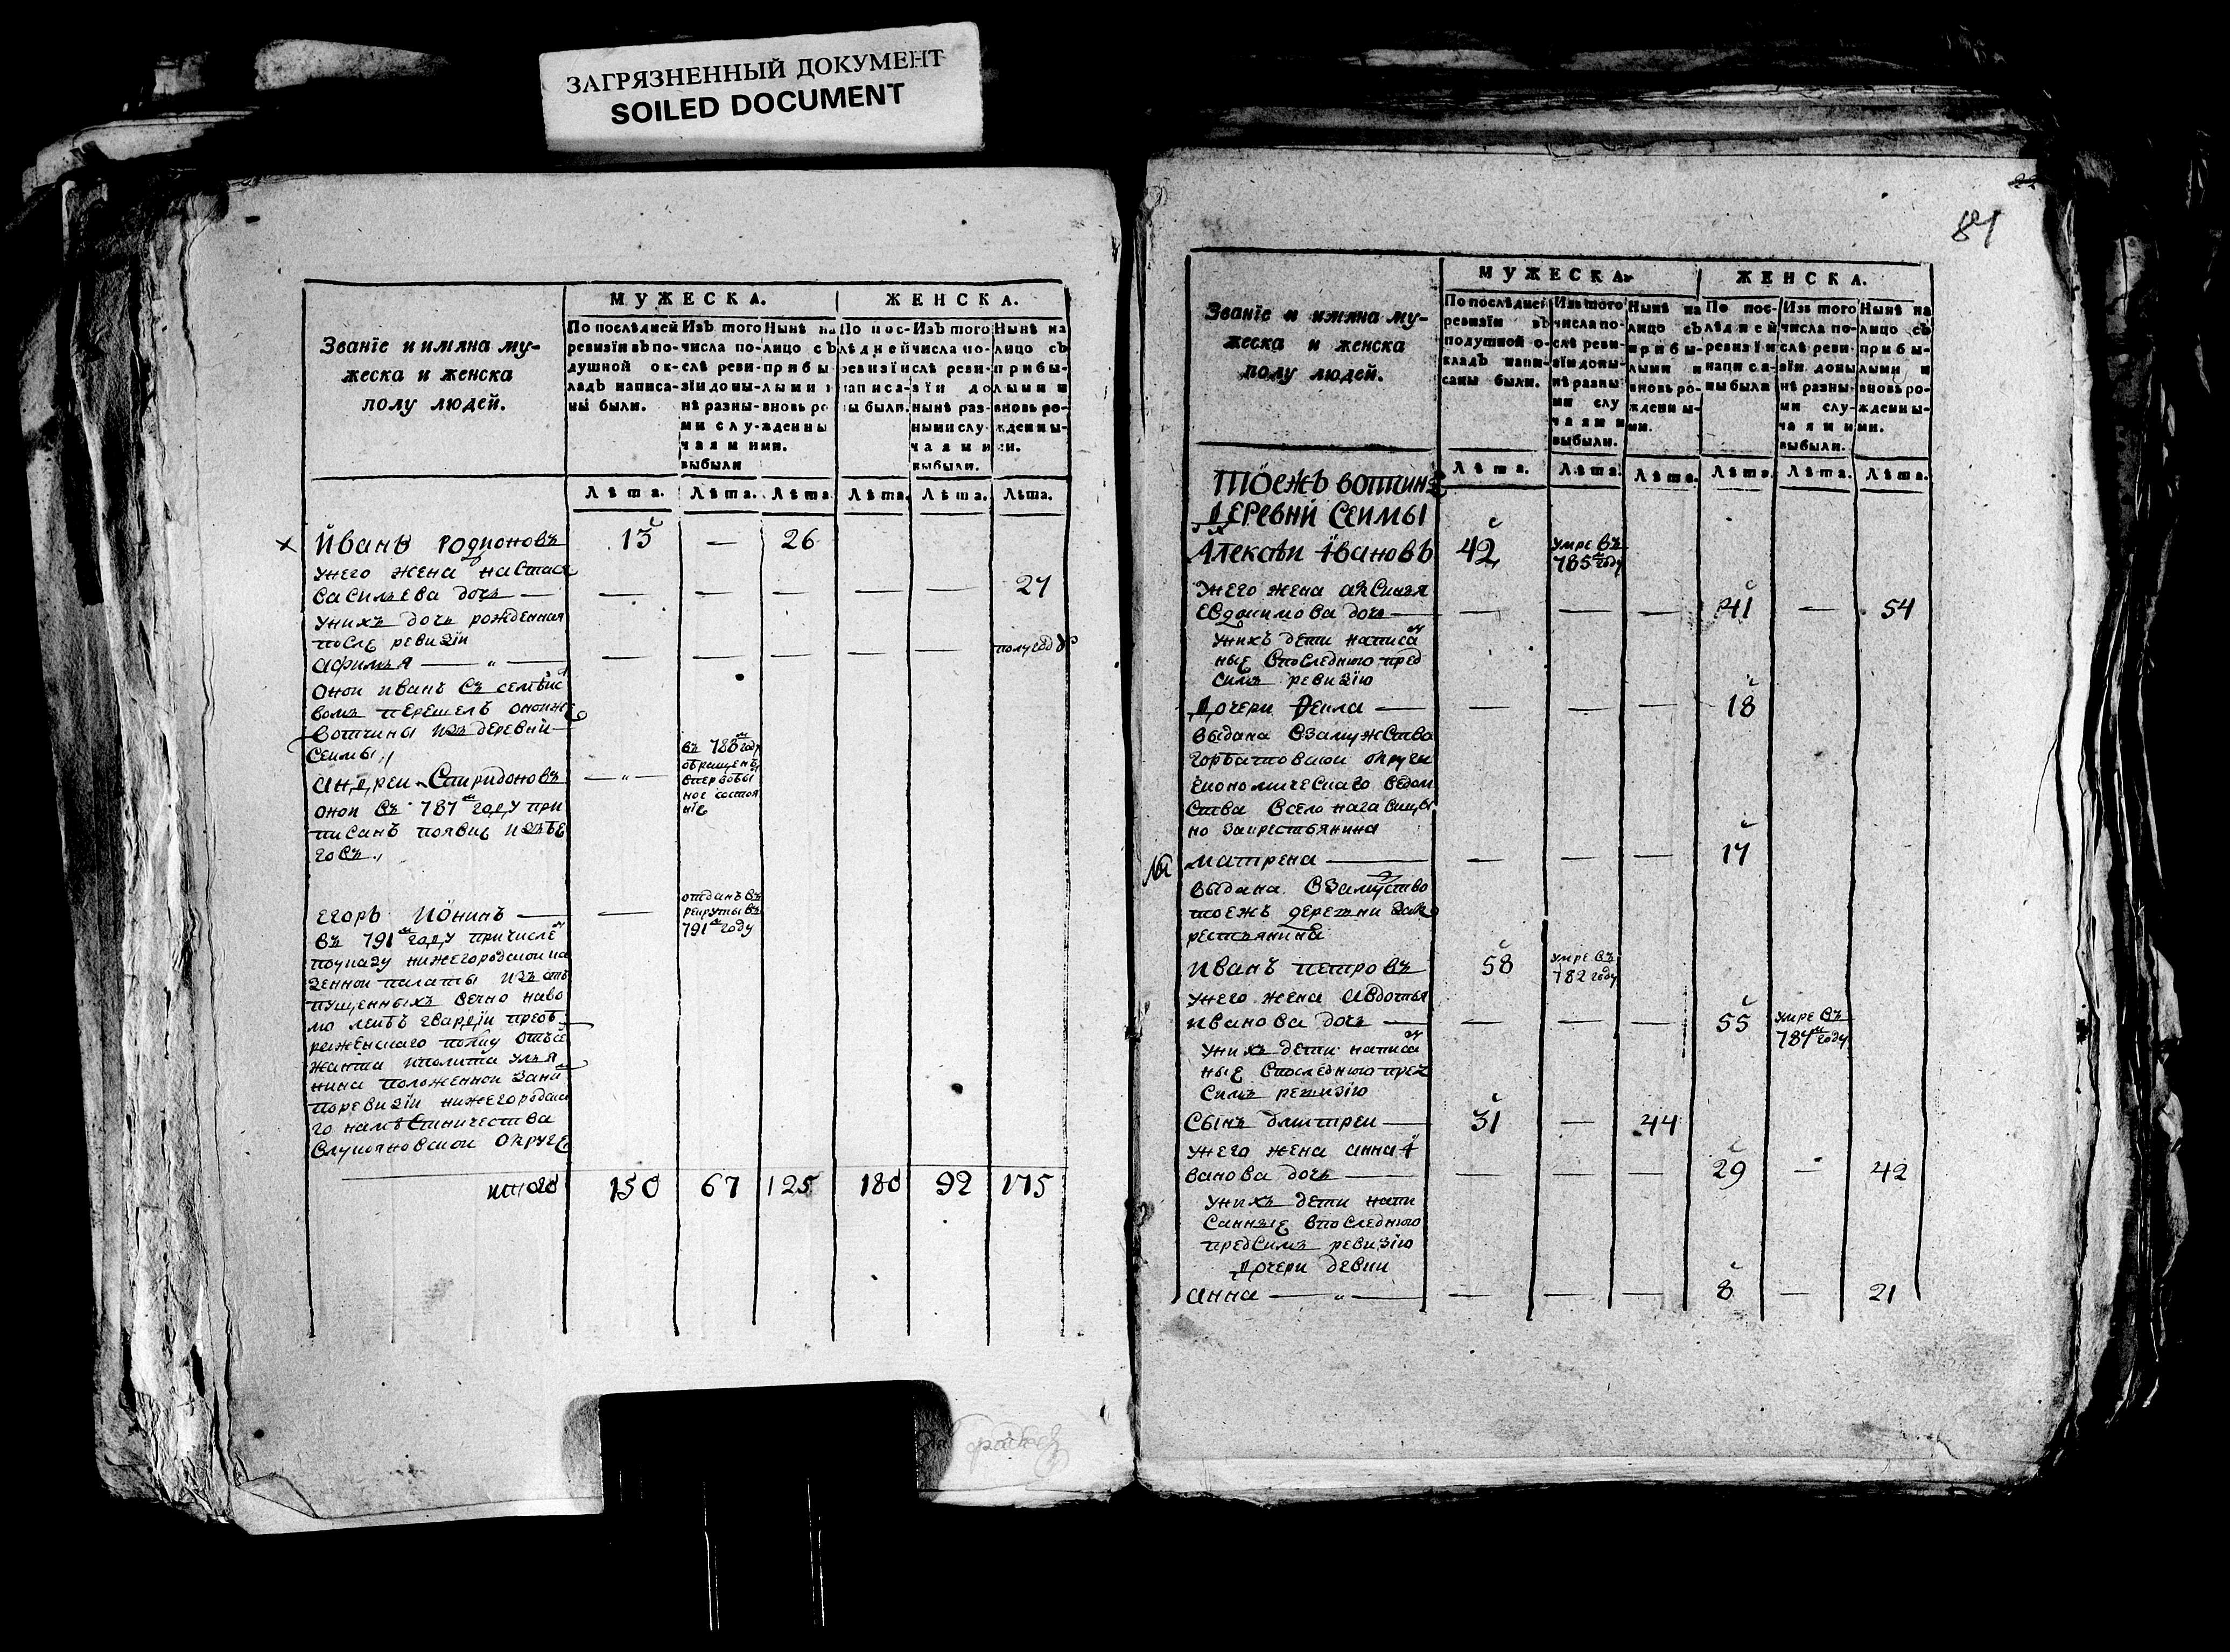 ЗАГРЯЗНЕННЫЙ ДОКУМЕНТ
SOILED DOCUMENT
Званїе и имяна му-
жеска и женска
полу людей.
МУЖЕСКА.
ЖЕНСКА.
По послѣдней ревизїи въ по-душной ок-ладъ написа-ны были.
Изъ того числа по-слѣ реви-зїи доны-нѣ разны-ми слу-чаями выбыли
Нынѣ на лицо съ прибы-лыми и вновь ро-жденны-ми.
По пос-лѣдней ревизїи написа-ны были.
Изъ того числа по-слѣ реви-зїи до нынѣ раз-ными слу-чаями выбыли.
Нынѣ на лицо съ прибы-лыми и вновь ро-жденны-ми.
Лѣта. Лѣта. Лѣта. Лѣта. Лѣта. Лѣта.
Иванъ родионовъ 13 — 26
унего жена настася
васильева дочь — — — — — — 27
унихъ дочь рожденная
после ревизїи
афимья — — — — — — полугоду
оной иванъ съ семѣйс
вомъ перешелъ оноиже
вотчины изъ деревни
сеимы
андреи Спиридоновъ — въ 788м году обращенъ впервобы ное состоя нїе
оной въ 787м году при
писанъ появке изъбе
говъ
егоръ Ионинъ — — отданъ въ рекруты въ 791м году
въ 791м году причисле
поуказу нижегородскои ка
зенной палаты изъ отъ
пущенныхъ вечно наво
лю леибъ гвардїи преоб
раженскаго полку
жанта иполита улья
нина положенной зани
поревизїи нижегородска
го намѣстничества
влукояновскои округе
итого 150 67 125 180 92 175
84
Званїе и имяна му-
жеска и женска
полу людей.
МУЖЕСКА
ЖЕНСКА.
По послѣдней ревизїи въ подушной о-кладъ напи-саны были.
Изъ того числа по-слѣ реви-зїи доны-нѣ разны-ми слу-чаями выбыли.
Нынѣ на лицо съ прибы-лыми и вновь ро-жденны-ми.
По пос-лѣдней ревизїи написа-ны были
Изъ того числа по-слѣ реви-зїи доны нѣ разны-ми слу-чаями выбыли.
Нынѣ на лицо съ прибы-лыми и вновь ро-жденны-ми.
Лѣта. Лѣта. Лѣта. Лѣта. Лѣта. Лѣта.
тоежъ вотчинѣ
деревни Сеимы
Алексѣи Ивановъ 42 умре въ 785м году
унего жена аксинья
евдокимова дочь — — — — 41 — 54
унихъ дети написа
ные впоследнюю пред
симъ ревизїю
дочери Фекла — — — — 18
выдана взамужство
горбатовскои округи
економическаго ведом
ства всело
но закрестьянина
матрена — — — — 17
выдана взамуство
тоежъ деревни зак
рестьянина
иванъ петровъ 58 умре въ 782 году
унего жена авдотья
иванова дочь — — — — 55 умре въ 787м году
унихъ дети написа
ные впоследнюю пред
симъ ревизїю
сынъ дмитреи — 31 — 44
унего жена анна и
ванова дочь — — — — 29 — 42
унихъ дети напи
санные впоследнюю
предсимъ ревизїю
дочери девки
анна — — — — 8 — 21